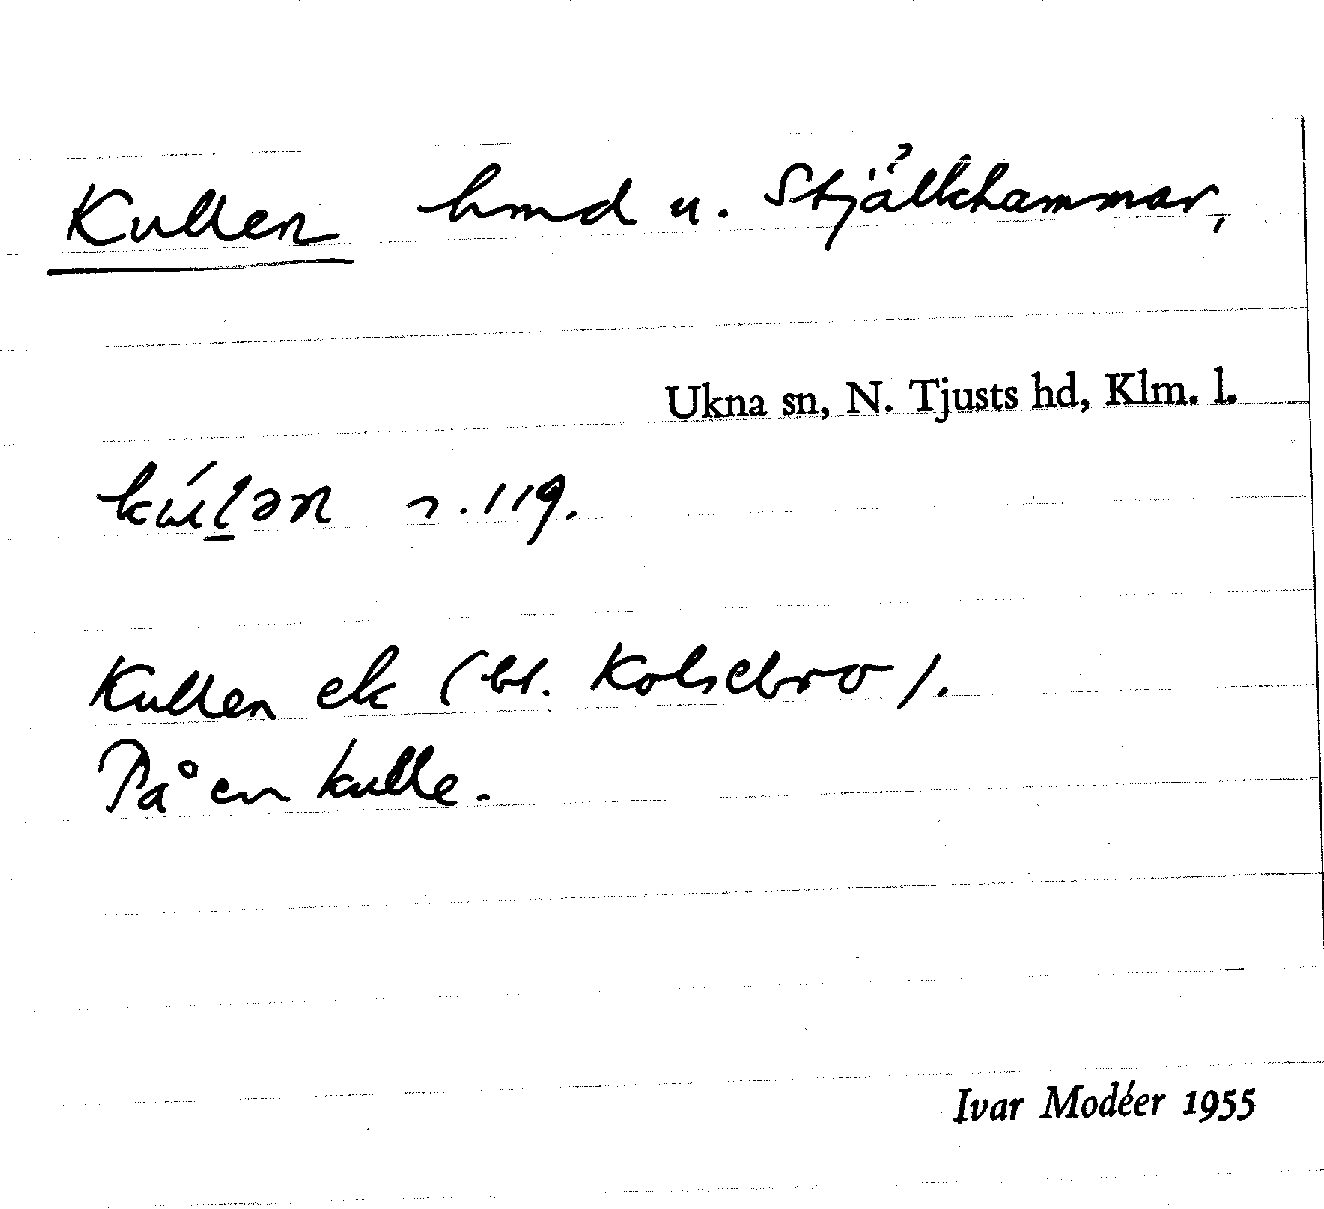 Kullen hmd u. Stjälkhammar,
Ukna sn, N. Tjusts hd, Klm. l.
kúl̲ən n. 119.
Kullen ek (bl. Kolsebro).
På en kulle.
Ivar Modéer 1955